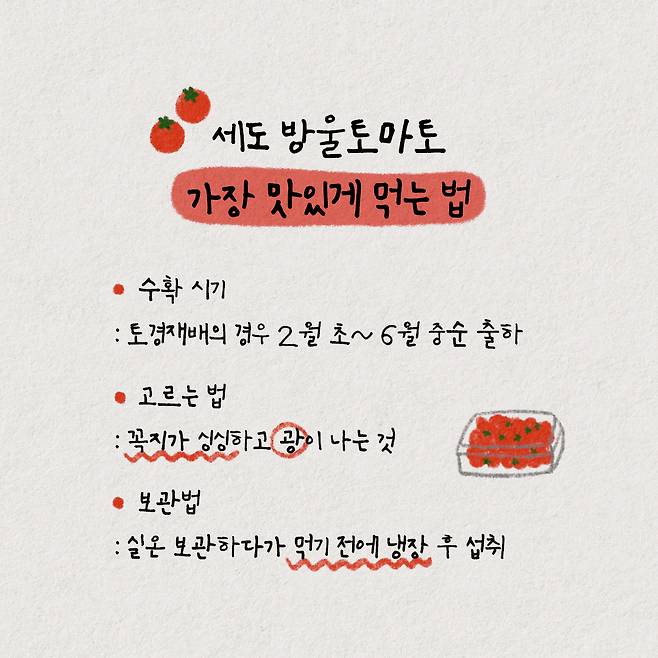 세도 방울토마토
가장 맛있게 먹는 법
수확 시기
: 토경재배의 경우 2월 초~ 6월 중순 출하
고르는 법
: 꼭지가 싱싱하고 광이 나는 것
보관법
: 실온 보관하다가 먹기 전에 냉장 후 섭취